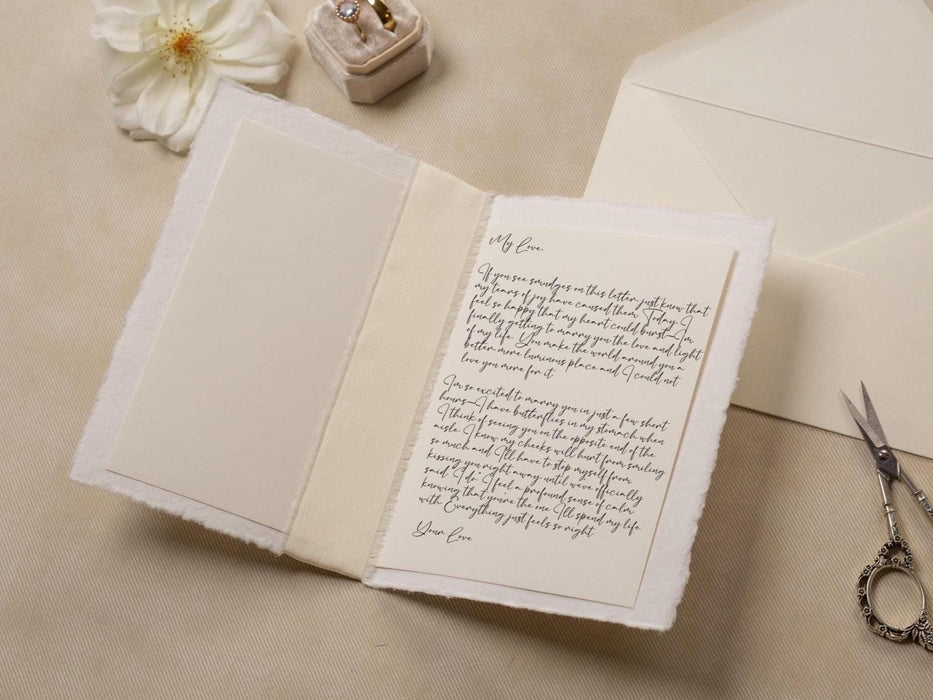 My Love
If you see smudges on this letter, just know that
my tears of joy have caused them. Today I
feel so happy that my heart could burst—I'm
finally getting to marry you the love and light
of my life. You make the world around you a
better more luminous place and I could not
love you more for it
I'm so excited to marry you in just a few short
hours—I have butterflies in my stomach when
I think of seeing you on the opposite end of the
aisle. I know my cheeks will hurt from smiling
so much and I'll have to stop myself from
kissing you right away until we've officially
said, I do. I feel a profound sense of calm
knowing that you're the one I'll spend my life
with. Everything just feels so right
Your Love